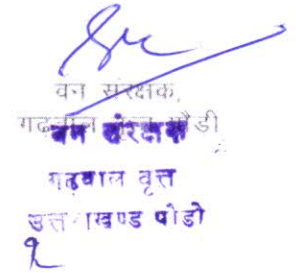 वन संरक्षक,
गढ़वाल पौडी
वन संरक्षक
गढवाल वृत्त
उत्तराखण्ड पोडी